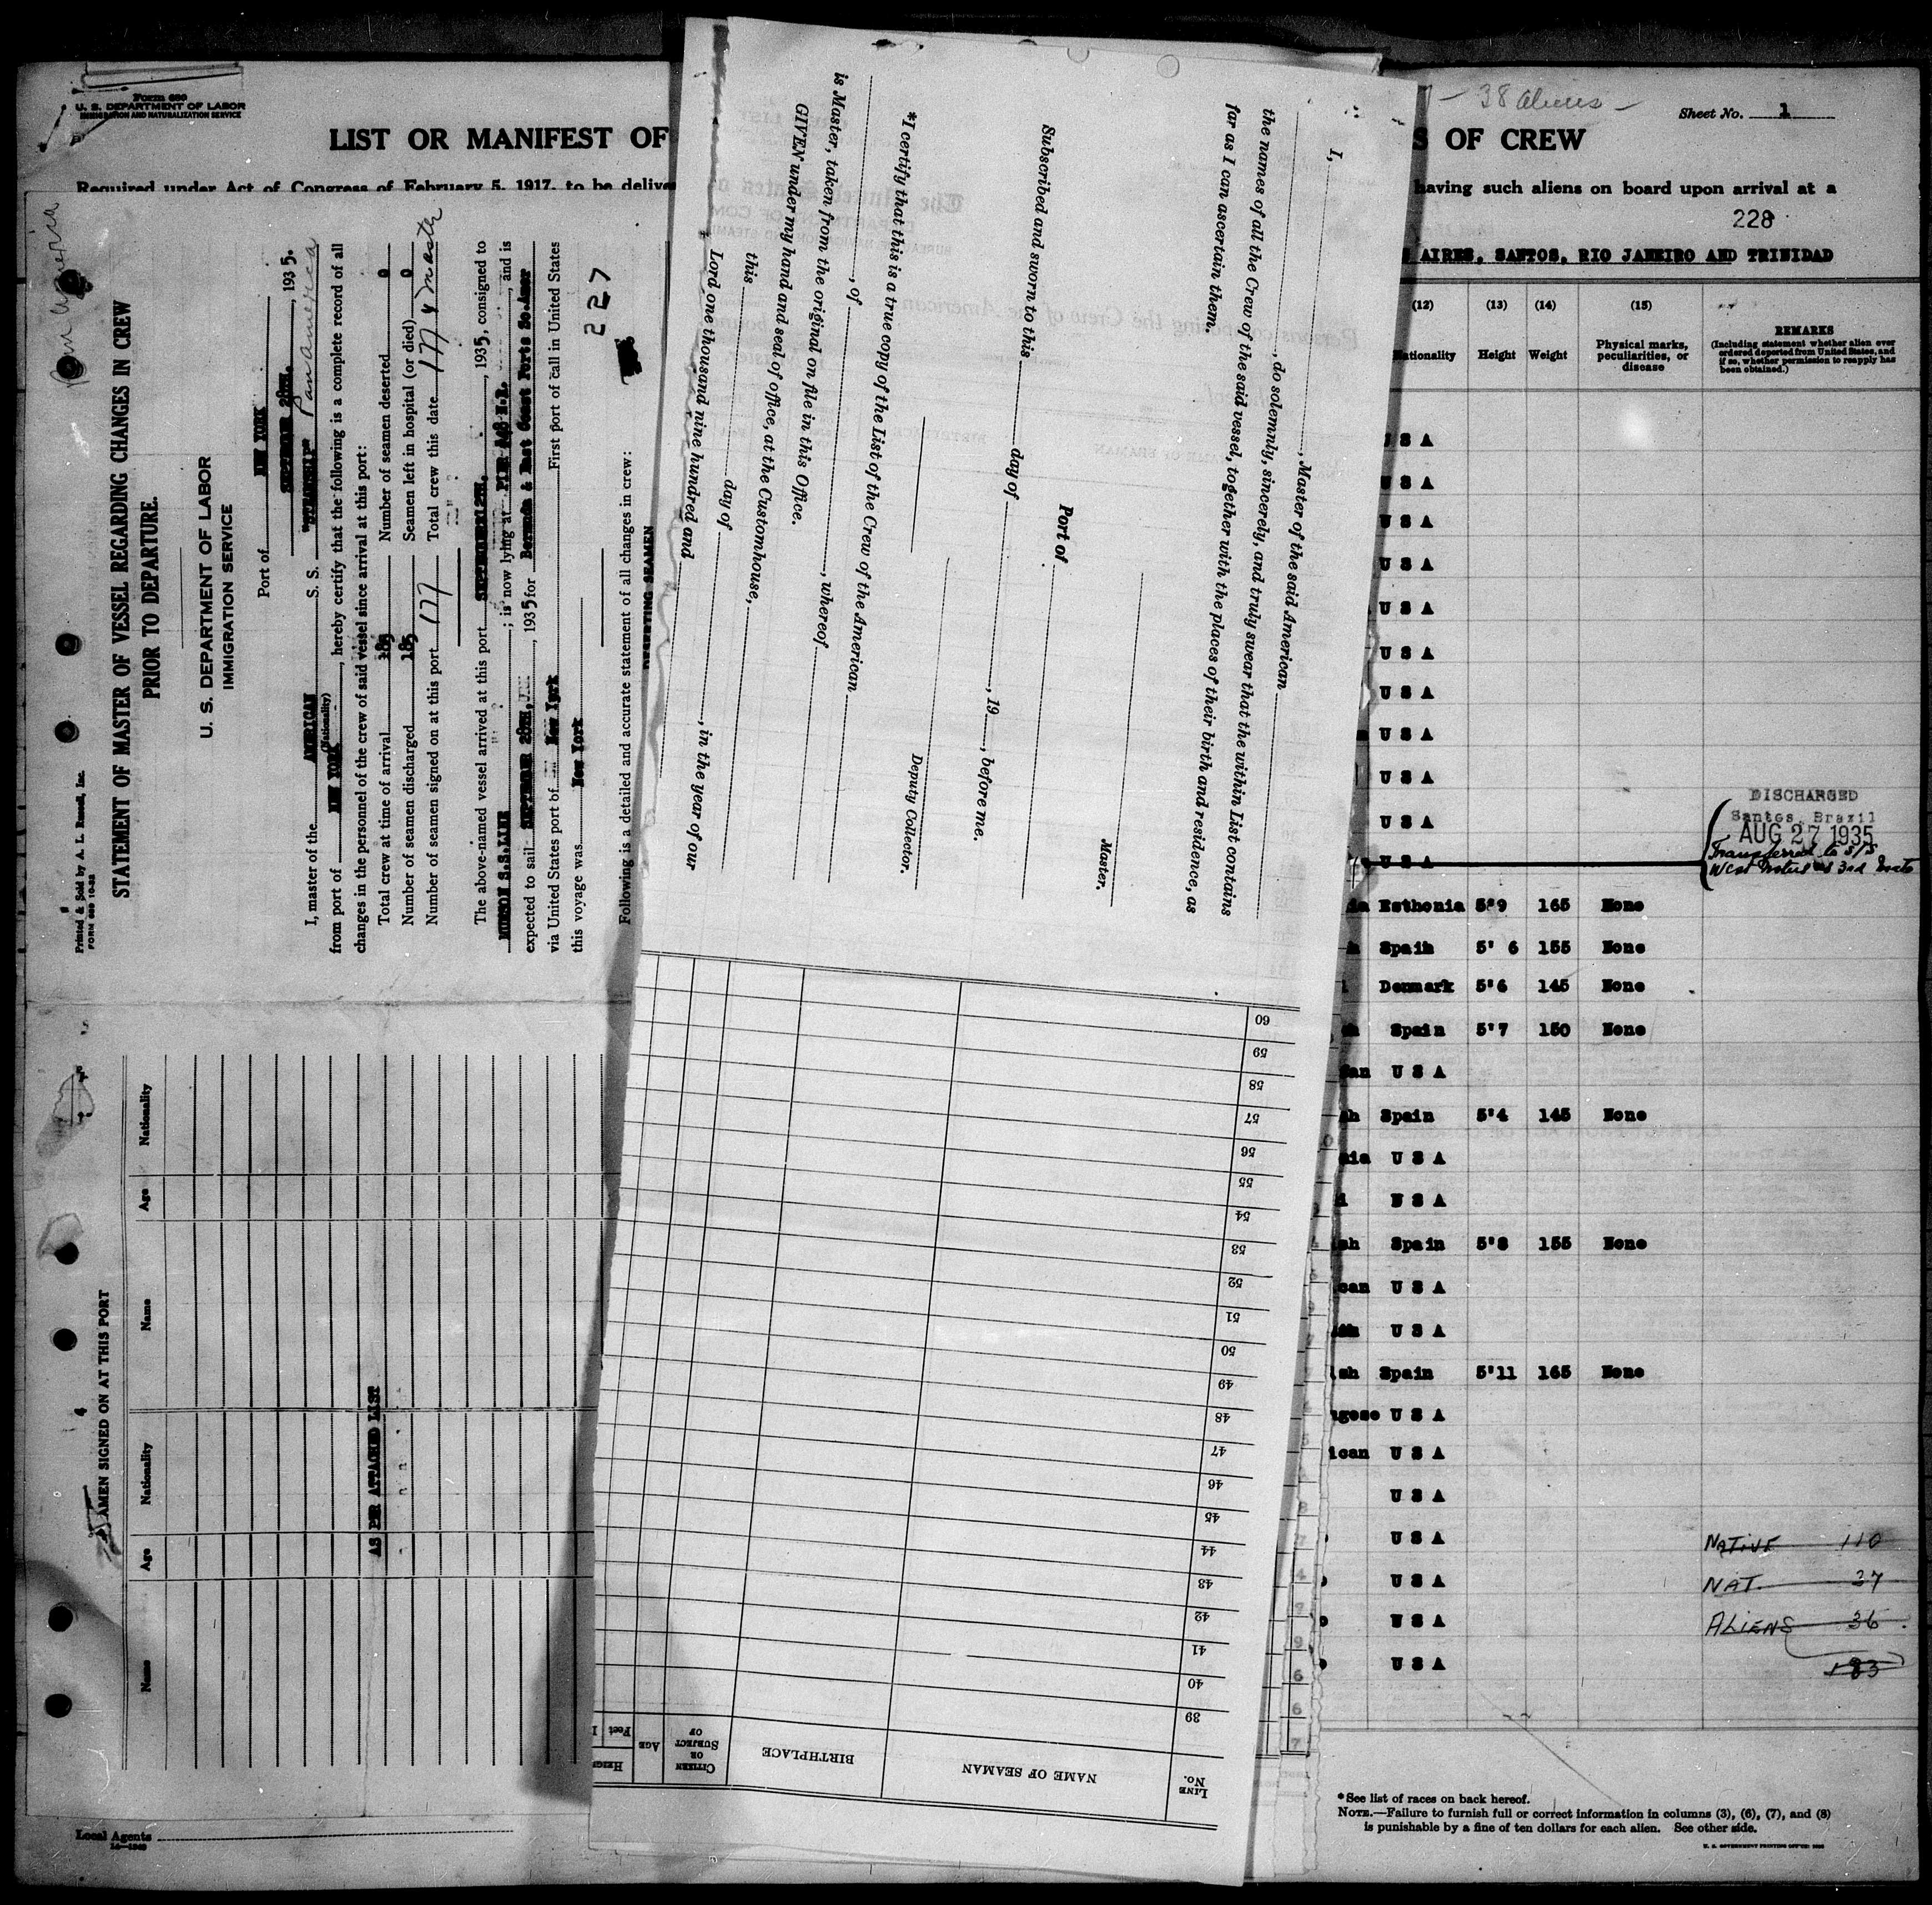 Form 680
U. S. DEPARTMENT OF LABOR
IMMIGRATION AND NATURALIZATION SERVICE
LIST OR MANIFEST OF
Required under Act of Congress of February 5, 1917, to be delive
38 aliens
Sheet No. 1
S OF CREW
having such aliens on board upon arrival at a
228
AIRES, SANTOS, RIO JANEIRO AND TRINIDAD
(12) (13) (14) (15)
Nationality Height Weight Physical marks, peculiarities, or disease
REMARKS
(Including statement whether alien ever
ordered deported from United States, and
if so, whether permission to reapply has
been obtained.)
U S A
U S A
U S A
U S A
U S A
U S A
U S A
U S A
U S A
U S A
U S A
DISCHARGED
Santos, Brazil
AUG 27 1935
Transferred to S/S
West as 3rd Mate
Esthonia 5'9 165 None
Spain 5' 6 155 None
Denmark 5'6 145 None
Spain 5'7 150 None
U S A
Spain 5'4 145 None
U S A
U S A
Spain 5'8 155 None
can U S A
U S A
ish Spain 5'11 165 None
ugese U S A
ican U S A
U S A
U S A
U S A
U S A
U S A
NATIVE 110
NAT. 37
ALIENS 36
183
*See list of races on back hereof.
NOTE.—Failure to furnish full or correct information in columns (3), (6), (7), and (8)
is punishable by a fine of ten dollars for each alien. See other side.
Local Agents
Printed & Sold by A. L. Russell, Inc.
STATEMENT OF MASTER OF VESSEL REGARDING CHANGES IN CREW
PRIOR TO DEPARTURE.
U. S. DEPARTMENT OF LABOR
IMMIGRATION SERVICE
Port of NEW YORK
SEPTEMBER 28TH, 1935.
I, master of the AMERICAN S. S. Pan America
(Nationality)
from port of NEW YORK, hereby certify that the following is a complete record of all
changes in the personnel of the crew of said vessel since arrival at this port:
Total crew at time of arrival 185 Number of seamen deserted 0
Number of seamen discharged 185 Seamen left in hospital (or died) 0
Number of seamen signed on at this port 177 Total crew this date 177 & master
The above-named vessel arrived at this port SEPTEMBER 12TH, 1935, consigned to
MUNSON S.S.LINE; is now lying at PIER, and is
expected to sail SEPTEMBER 28TH, 1935 for Bermuda & East Coast Ports So Amer
via United States port of New York First port of call in United States
this voyage was New York
227
Following is a detailed and accurate statement of all changes in crew:
DESERTING SEAMEN
SEAMEN SIGNED ON AT THIS PORT
Name Age Nationality Name Age Nationality
AS PER ATTACHED LIST
I, Master of the said American
, do solemnly, sincerely, and truly swear that the within List contains
the names of all the Crew of the said vessel, together with the places of their birth and residence, as
far as I can ascertain them.
Master.
Port of
Subscribed and sworn to this day of , 19 , before me.
Deputy Collector.
*I certify that this is a true copy of the List of the Crew of the American
, of , whereof
is Master, taken from the original on file in this Office.
GIVEN under my hand and seal of office, at the Customhouse,
this day of , in the year of our
Lord one thousand nine hundred and
LINE No. NAME OF SEAMAN BIRTHPLACE CITIZEN OR SUBJECT OF AGE
39
40
41
42
43
44
45
46
47
48
49
50
51
52
53
54
55
56
57
58
59
60